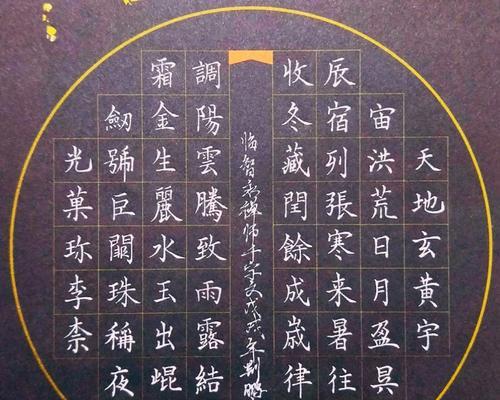 天地玄黃宇
宙洪荒日月盈昃
辰宿列張寒来暑往
收冬藏閏餘成嵗律
临智永禅师千字文
調陽雲騰致雨露結
霜金生麗水玉出崐
劒號巨闕珠稱夜
光菓珎李柰